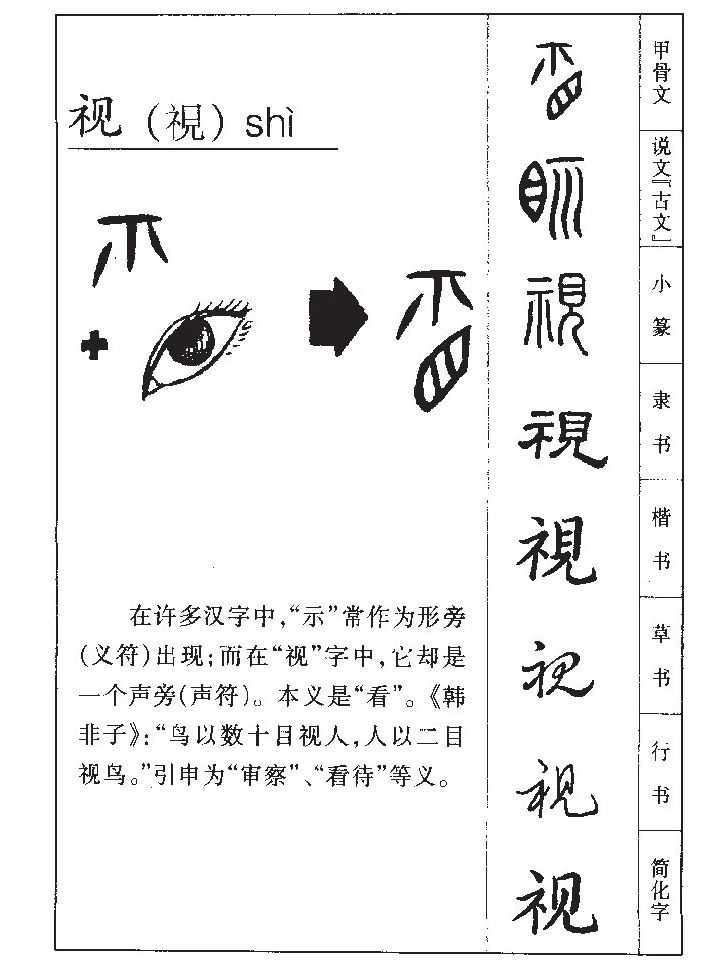 视（視）shì
在许多汉字中，“示”常作为形旁
（义符）出现；而在“视”字中，它却是
一个声旁（声符）。本义是“看”。《韩
非子》：“鸟以数十目视人，人以二目
视鸟。”引申为“审察”、“看待”等义。
甲骨文
说文『古文』
小篆
視
隶书
視
楷书
視
草书
视
行书
視
简化字
视